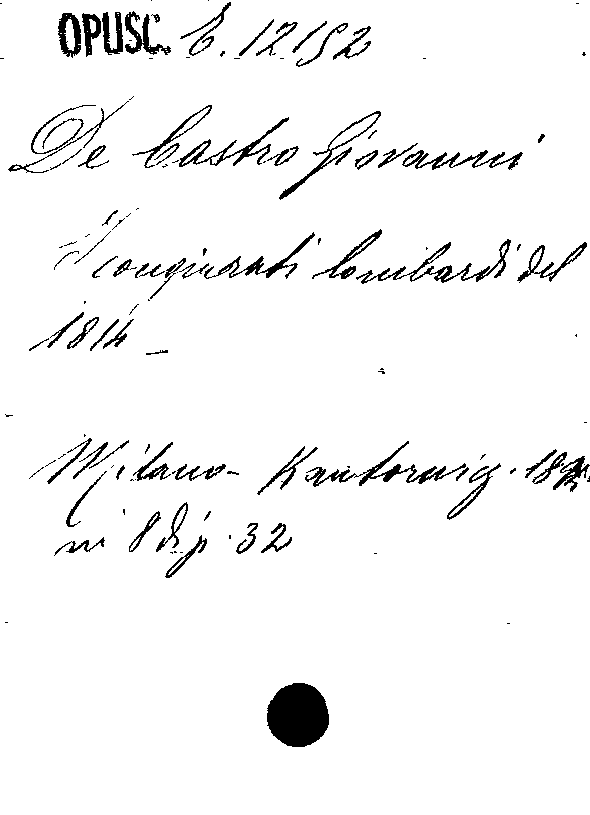 OPUSC. E. 12152
De Castro Giovanni
I congiurati lombardi del
1814 -
Milano - Kantorowig.
in 8 di p. 32